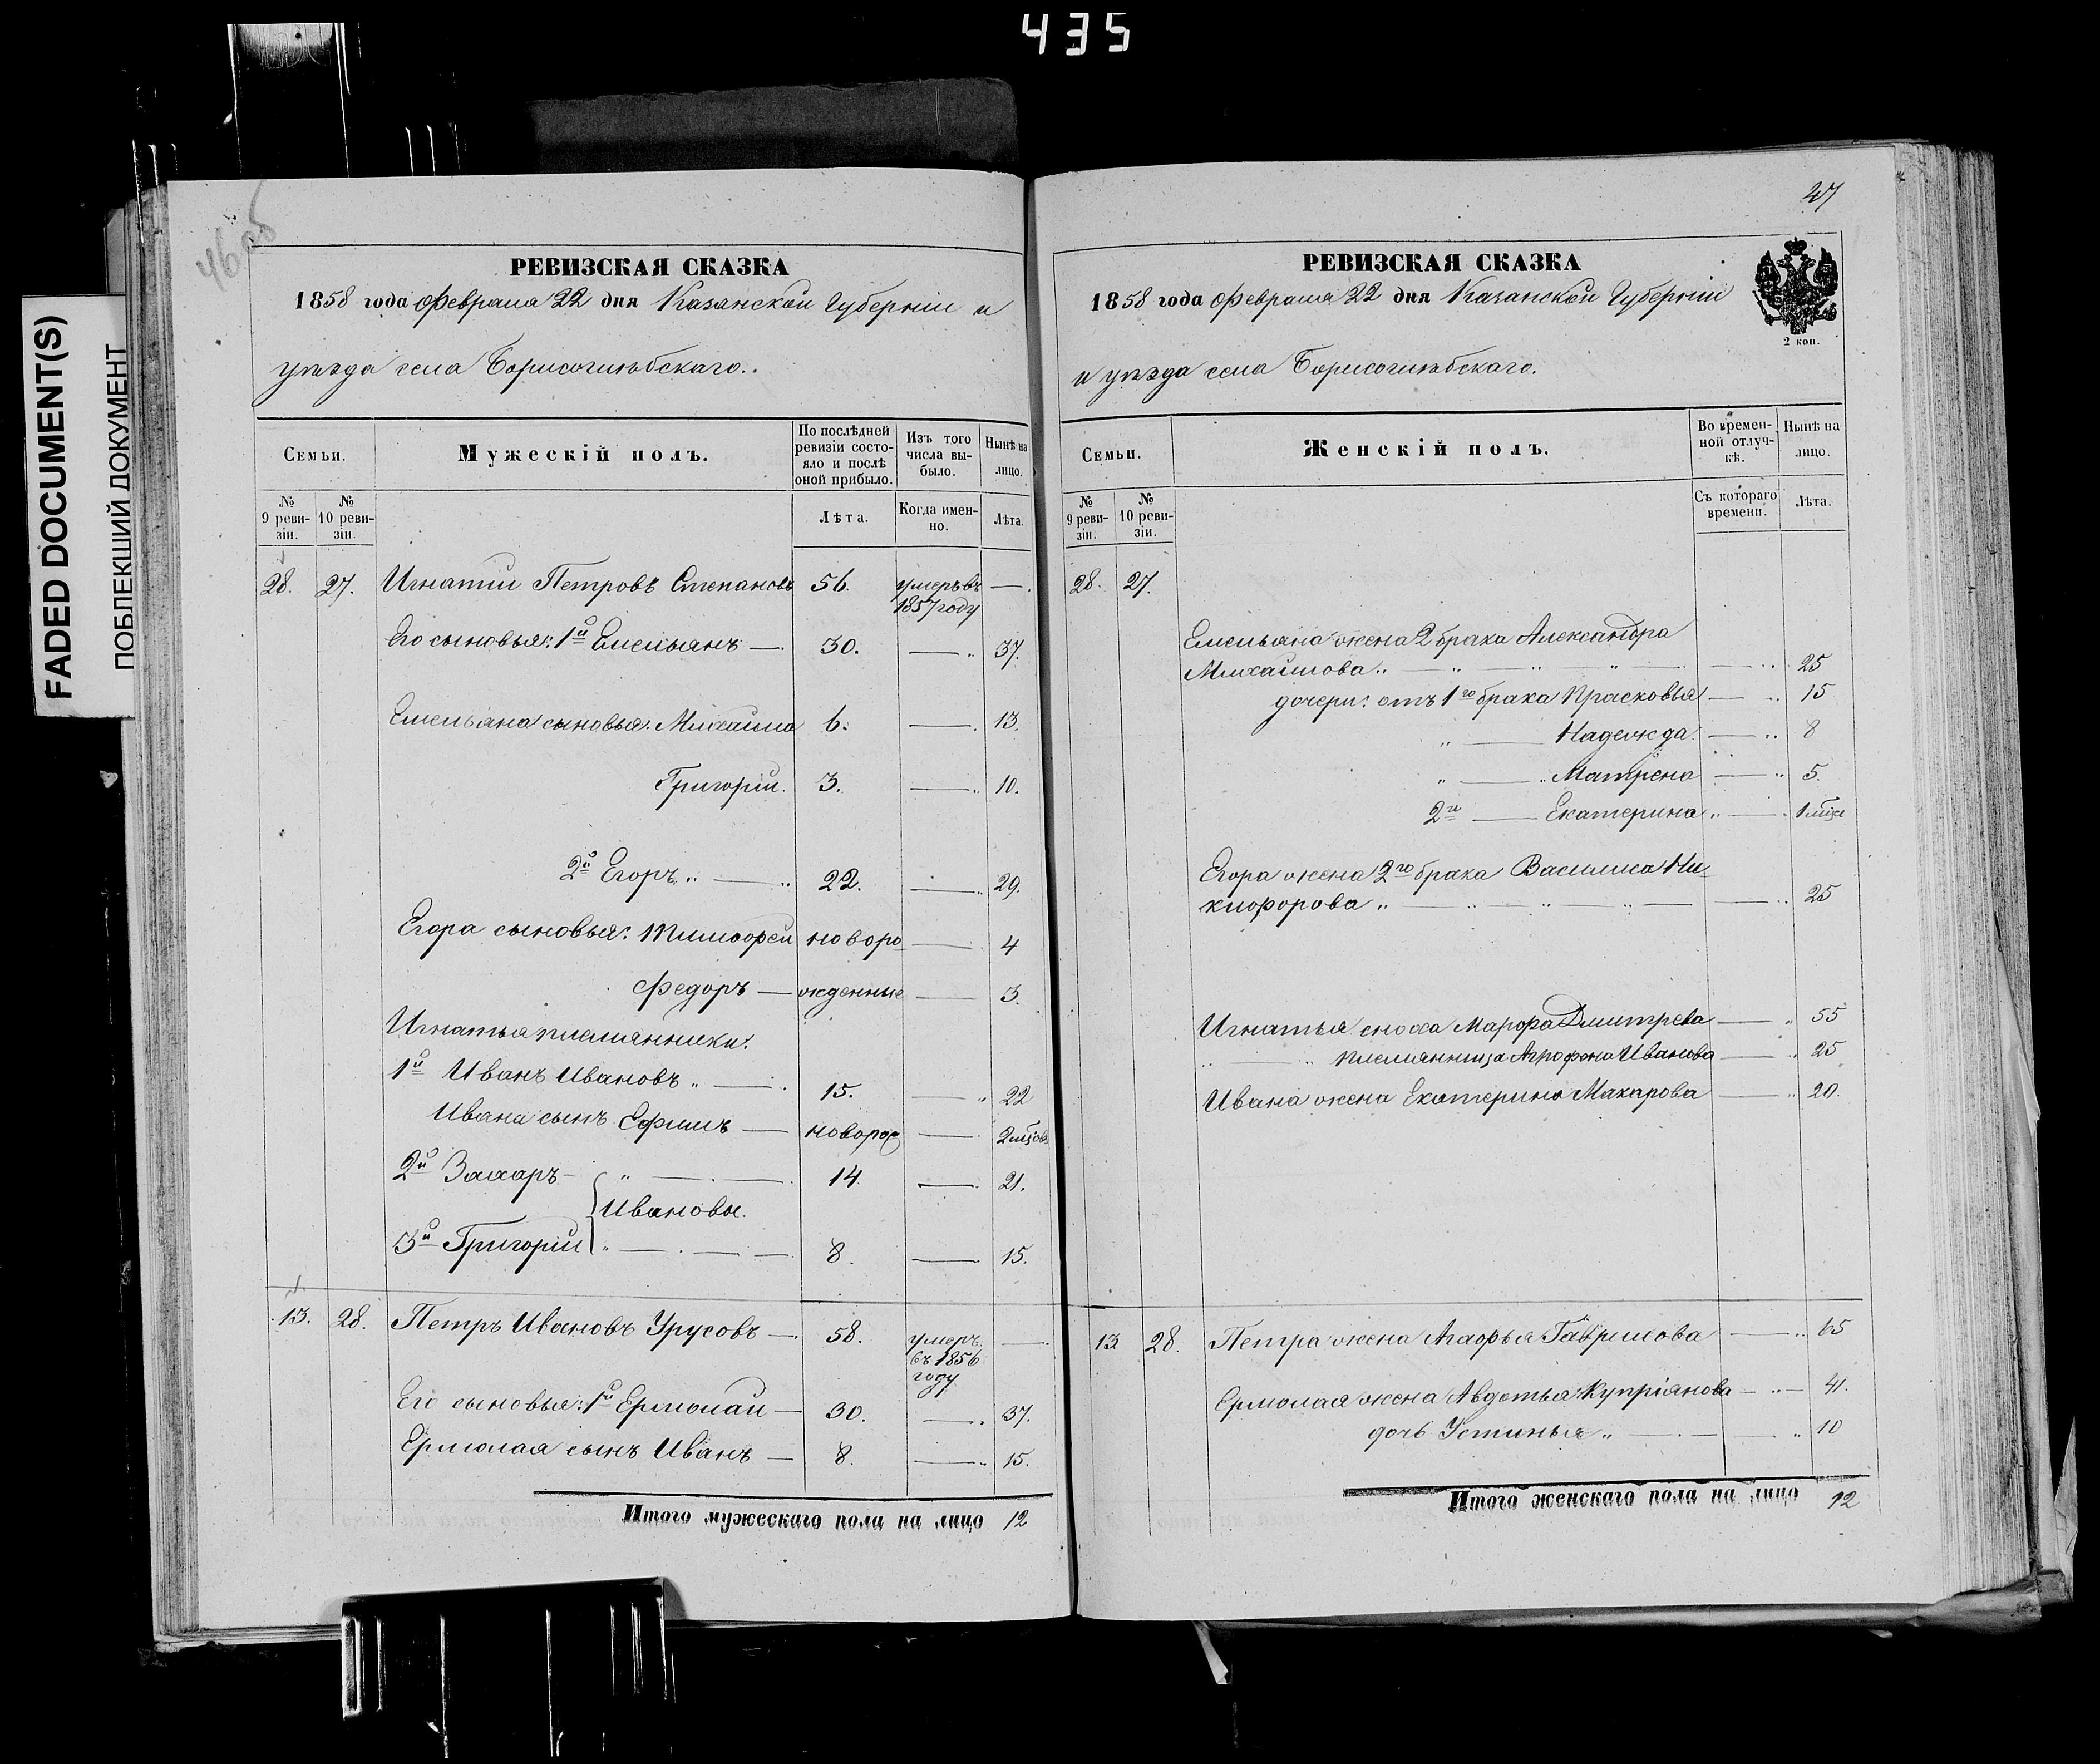 435
FADED DOCUMENT(S)
ПОБЛЕКШИЙ ДОКУМЕНТ
46об
РЕВИЗСКАЯ СКАЗКА
1858 года Февраля 22 дня Казанской Губернiи и
уѣзда села Борисоглѣбскаго.
Семьи.
Мужескiй полъ.
По послѣдней ревизiи состояло и послѣ оной прибыло.
Изъ того числа выбыло.
Нынѣ на лицо.
№ 9 ревизiи.
№ 10 ревизiи.
Лѣта.
Когда именно.
Лѣта.
28. 27. Игнатiй Петровъ Степановъ 56. умеръ въ 1857 году —
Его сыновья: 1й Емельянъ — 30. — 37.
Емельяна сыновья: Михайла 6. — 13.
Григорiй. 3. — 10.
2й Егоръ „ — „ 22. — 29.
Егора сыновья: Тимофей новоро — 4
Федоръ — жденные — 3.
Игнатья племянники:
1й Иванъ Ивановъ „ — 15. — „ 22
Ивана сынъ Ефимъ — новорож — 2 мѣсов
2й Захаръ — „ — 14. — 21.
Ивановы.
3й Григорiй „ — 8. — 15.
13. 28. Петръ Ивановъ Урусовъ — 58. умеръ въ 1856 году —
Его сыновья: 1й Ермолай — 30. — 37.
Ермолая сынъ Иванъ — 8. — 15.
Итого мужескаго пола на лицо 12
47
РЕВИЗСКАЯ СКАЗКА
1858 года Февраля 22 дня Казанской Губернiи
и уѣзда села Борисоглѣбскаго.
2 коп.
Семьи.
Женскiй полъ.
Во временной отлучкѣ.
Нынѣ на лицо.
№ 9 ревизiи.
№ 10 ревизiи.
Съ котораго времени.
Лѣта.
28. 27.
Емельяна жена 2 брака Александра
Михайлова „ — „ — „ — „ — 25
дочери: отъ 1го брака Прасковья — „ 15
„ — Надежда. — „ 8
„ — „ Матрена — „ 5.
2й — Екатерина „ — 1 мѣся
Егора жена 2го брака Василиса Ни
кифорова „ — „ — „ — „ — 25
Игнатья сноха Марфа Дмитрева — „ 55
„ — „ племянница Агрофена Иванова — „ 25
Ивана жена Екатерина Макарова — „ 20.
13 28. Петра жена Агафья Гаврилова — „ 65
Ермолая жена Авдотья Купрiянова — „ — 41.
дочь Устинья „ — „ 10
Итого женскаго пола на лицо 12